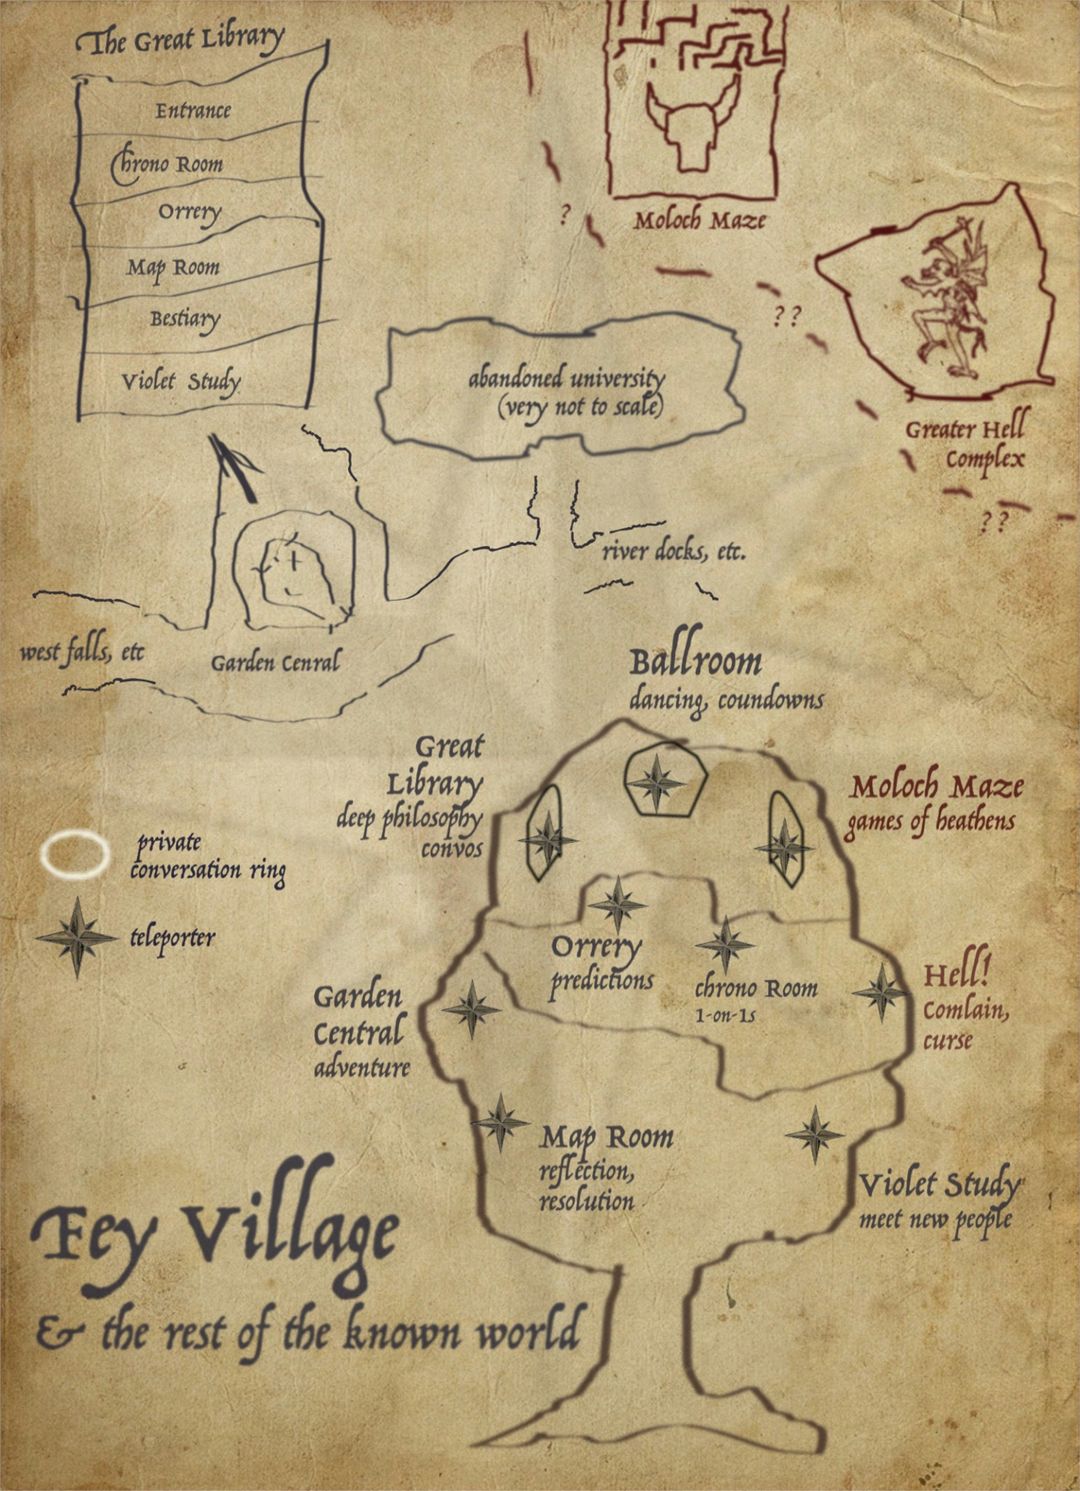 The Great Library
Entrance
Chrono Room
Orrery
Map Room
Bestiary
Violet Study
Moloch Maze
?
??
Greater Hell
Complex
??
abandoned university
(very not to scale)
river docks, etc.
west falls, etc
Garden Cenral
Ballroom
dancing, coundowns
Great
Library
deep philosophy
convos
Moloch Maze
games of heathens
private
conversation ring
teleporter
Orrery
predictions
chrono Room
1-on-1s
Garden
Central
adventure
Hell!
Comlain,
curse
Map Room
reflection,
resolution
Violet Study
meet new people
Fey Village
& the rest of the known world